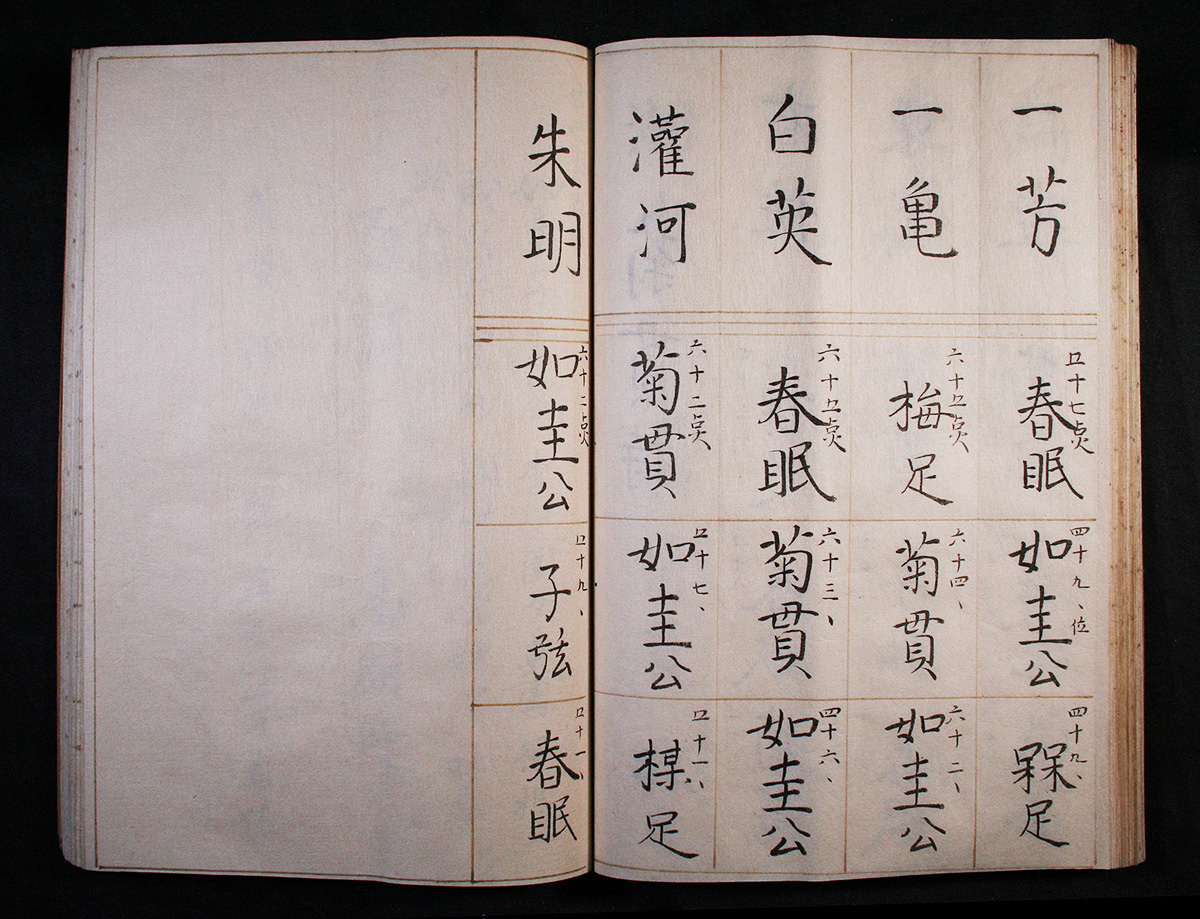 一芳
五十七点
春眠
四十九、位
如圭公
四十九、
槑足
一亀
六十五点
梅足
六十四、
菊貫
六十二、
如圭公
白英
六十五点
春眠
六十三、
菊貫
四十六、
如圭公
灌河
六十二点
菊貫
五十七、
如圭公
五十一、
楳足
朱明
六十二点
如圭公
五十九、
子弦
五十一、
春眠